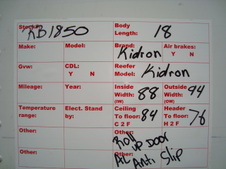 Stock#: RB1850 Body Length: 18
Make: Model: Brand: Kidron Air brakes: Y N
Gvw: CDL: Y N Reefer Model: Kidron
Mileage: Year: Inside Width: 88 (IW) Outside Width: 94 (OW)
Temperature range: Elect. Stand by: Ceiling To floor: 84 C 2 F Header To floor: 76 H 2 F
Other: Other: Other: Roll up DOOR
Other: Other: Al Anti Slip